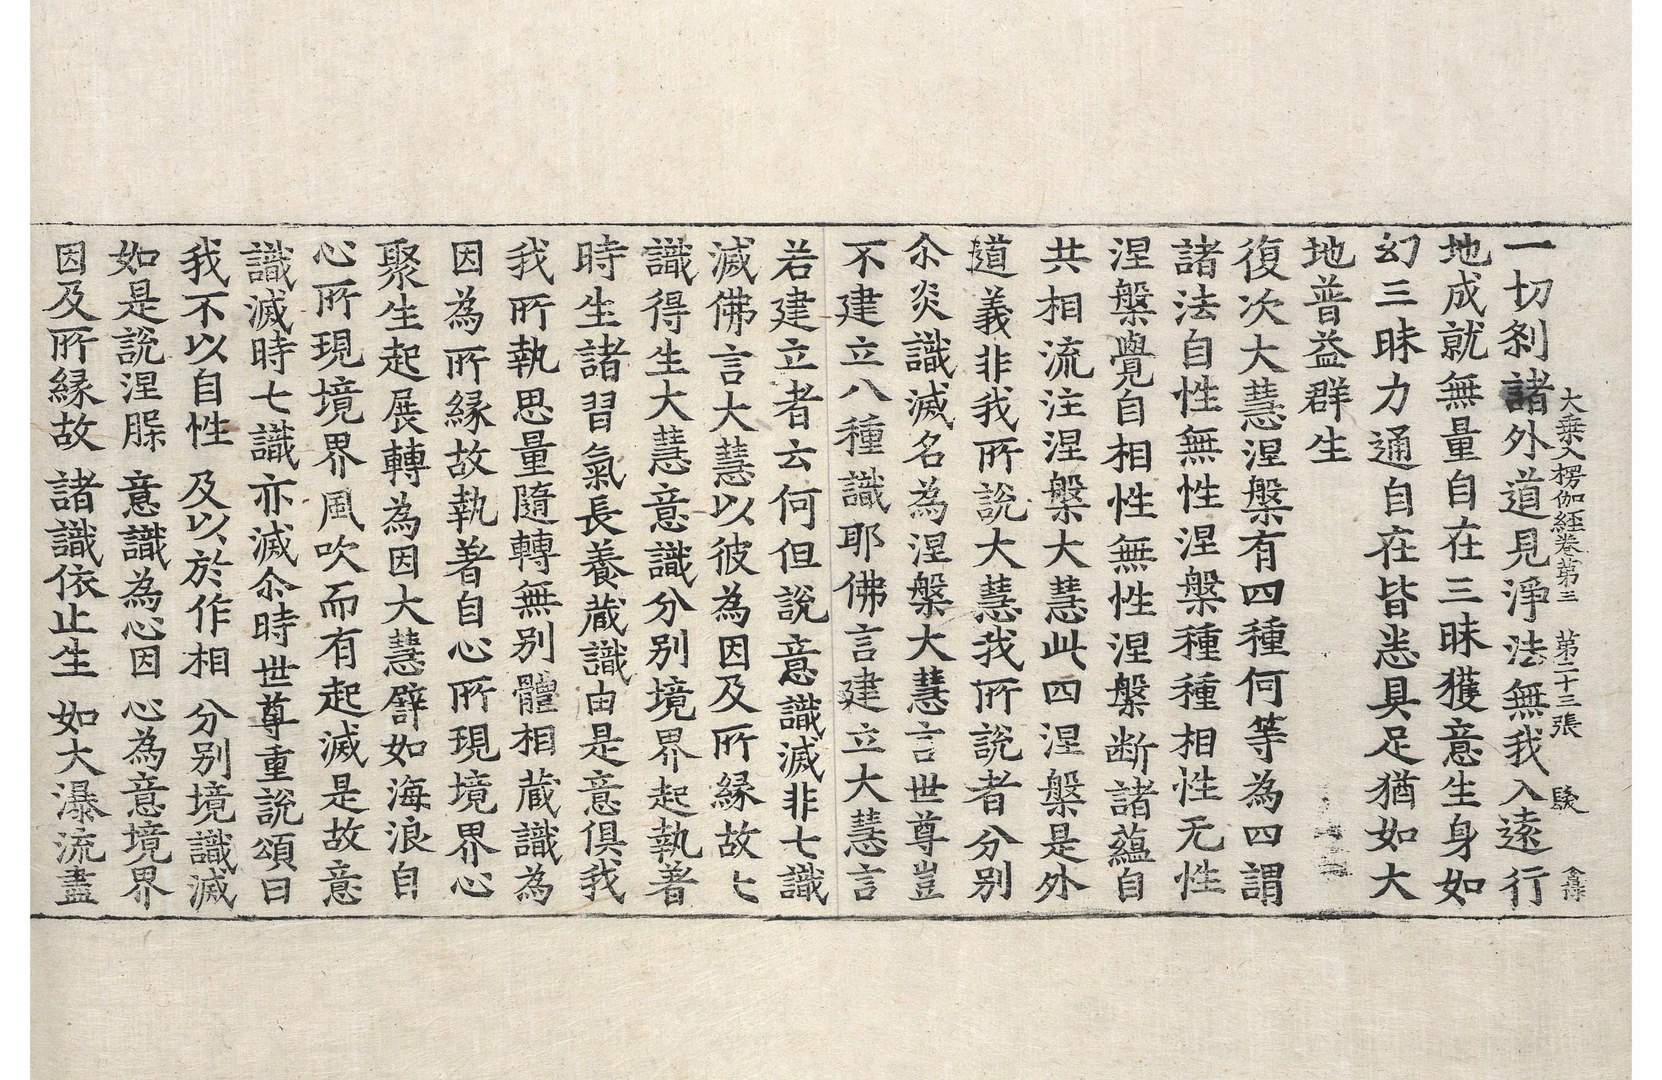 大乘入楞伽經卷第三 第二十三張 駮
一切刹諸外道見淨法無我入遠行
地成就無量自在三昧獲意生身如
幻三昧力通自在皆悉具足猶如大
地普益群生
復次大慧涅槃有四種何等為四謂
諸法自性無性涅槃種種相性无性
涅槃覺自相性無性涅槃断諸蘊自
共相流注涅槃大慧此四涅槃是外
道義非我所說大慧我所說者分别
尒炎識滅名為涅槃大慧言世尊豈
不建立八種識耶佛言建立大慧言
若建立者云何但說意識滅非七識
滅佛言大慧以彼為因及所縁故七
識得生大慧意識分别境界起執著
時生諸習氣長養蔵識由是意俱我
我所執思量隨轉無别體相蔵識為
因為所縁故執著自心所現境界心
聚生起展轉為因大慧譬如海浪自
心所現境界風吹而有起滅是故意
識滅時七識亦滅尒時世尊重說頌曰
我不以自性 及以於作相 分别境識滅
如是說涅槃 意識為心因 心為意境界
因及所縁故 諸識依止生 如大瀑流盡